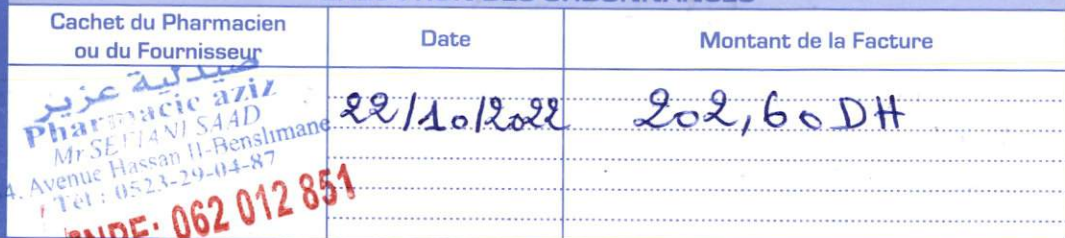 Cachet du Pharmacien
ou du Fournisseur
Date
Montant de la Facture
صيدلية عزيز
Pharmacie aziz
Mr SAAD
Avenue Hassan II-Benslimane
Tél : 0523-29-04-87
INPE: 062 012 851
22/10/2022
202,60 DH